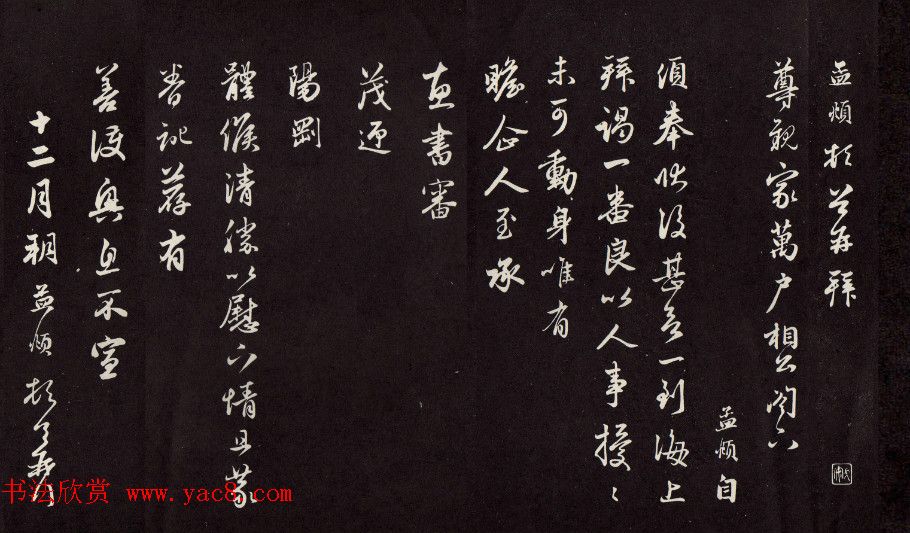 孟頫頓首再拜
尊親家萬戶相公閣下
孟頫自
須奉狀後甚欲一到海上
拜謁一番良以人事擾〻
未可動身唯有
瞻企人至承
惠書審
茂迎
陽剛
體候清勝以慰下情且蒙
眷記荐有
善後輿且不宣
十二月朔孟頫頓首再拜
书法欣赏 www.yac8.com